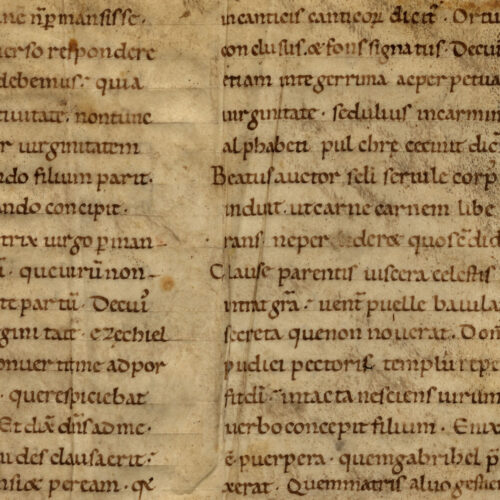 unc np mansisse.
verso respondere
debemus. quia
tuitate. non tunc
r uirginitatem
ndo filium parit.
ando concipit.
trix uirgo pman
que uirū non
te partū. Decuī
ginitati. ezechiel
onuertit me ad por
. que respiciebat
Et dix dn̄s ad me.
u des clausa erit.
peream. qa
in canticis canticor dicit̄. Ortu
conclusus. & fons signatus. Decuī
etiam integerrima ac perpetua
uirginitate. sedulius in carmin
alphabeti pul chre cecinit dic
Beatus auctor scli seruile corp
induit. ut carne carnem libe
rans ne per deret quos cūdid
Clause parentis uiscera celestis
intrat gra. uent puelle baiula
secreta que non nouerat. Dom
pudici pectoris templū repe
fit di. intacta nesciens uirum
uerbo concepit filium. Enix
ē puerpera. quem gabrihel p
xerat. Quem matris aluo gestie